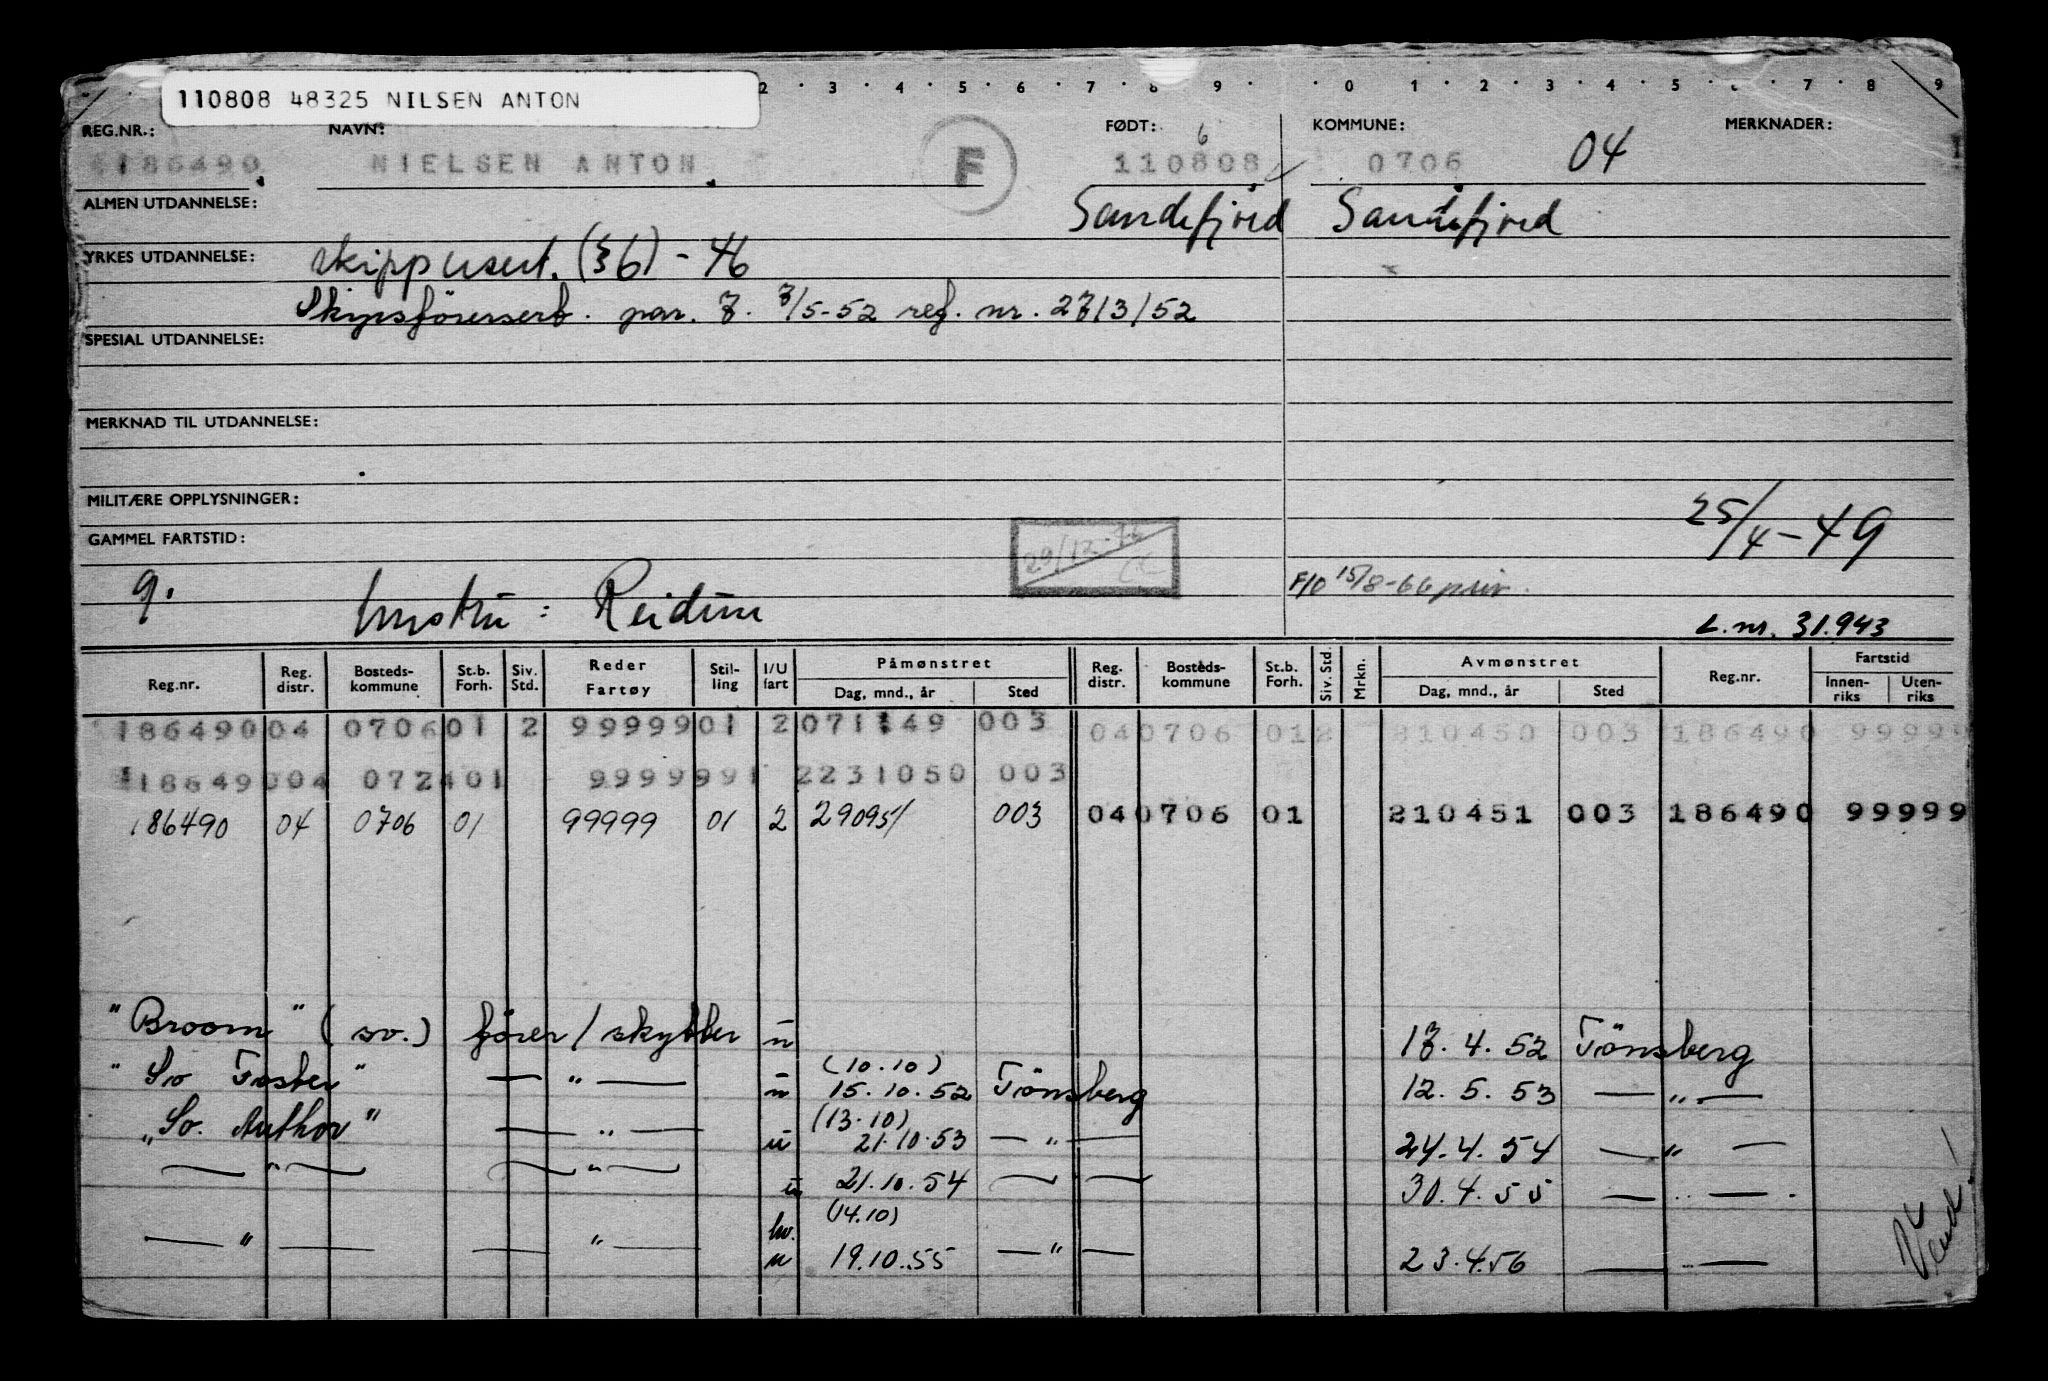 2 · 3 · 4 · 5 · 6 · 7 · 8 · 9 · · 0 · 1 · 2 · 3 · 4 · 5 · 6 · 7 · 8 · 9
110808 48325 NILSEN ANTON
REG.NR.: NAVN: FØDT: 6 KOMMUNE: MERKNADER:
186490 NIELSEN ANTON F 110808 0706 04
ALMEN UTDANNELSE: Sandefjord Sandefjord
YRKES UTDANNELSE: skippersert. (§6) - 46
Skipsførersert. par. 7. 7/5-52 ref. nr. 2713/52
SPESIAL UTDANNELSE:
MERKNAD TIL UTDANNELSE:
MILITÆRE OPPLYSNINGER: 25/4-49
GAMMEL FARTSTID: 29/12-76
F/O 15/8-66 priv.
9. hustru : Reidun L.nr. 31.943
Reg.nr. Reg. distr. Bosteds-kommune St.b. Forh. Siv. Std. Reder Fartøy Stil-ling I/U fart Påmønstret Dag, mnd., år Sted Reg. distr. Bosteds-kommune St.b. Forh. Siv. Std. Mrkn. Avmønstret Dag, mnd., år Sted Reg.nr. Fartstid Innen-riks Uten-riks
186490 04 0706 01 2 99999 01 2 071149 003 04 0706 01 2 210450 003 186490 99999
186490 04 0724 01 99999 91 2 231050 003
186490 04 0706 01 99999 01 2 290951 003 04 0706 01 210451 003 186490 99999
"Broom" (sv.) fører/skytter u 17.4.52 Tönsberg
(10.10)
"So Foster" — " — u 15.10.52 Tönsberg 12.5.53 — " —
(13.10)
"So. Author" — " — u 21.10.53 — " — 24.4.54 — " —
— " — — " — u 21.10.54 — " — 30.4.55 — " — .
(14.10)
— " — — " — hv. u 19.10.55 — " — 23.4.56 — " —
Vend!